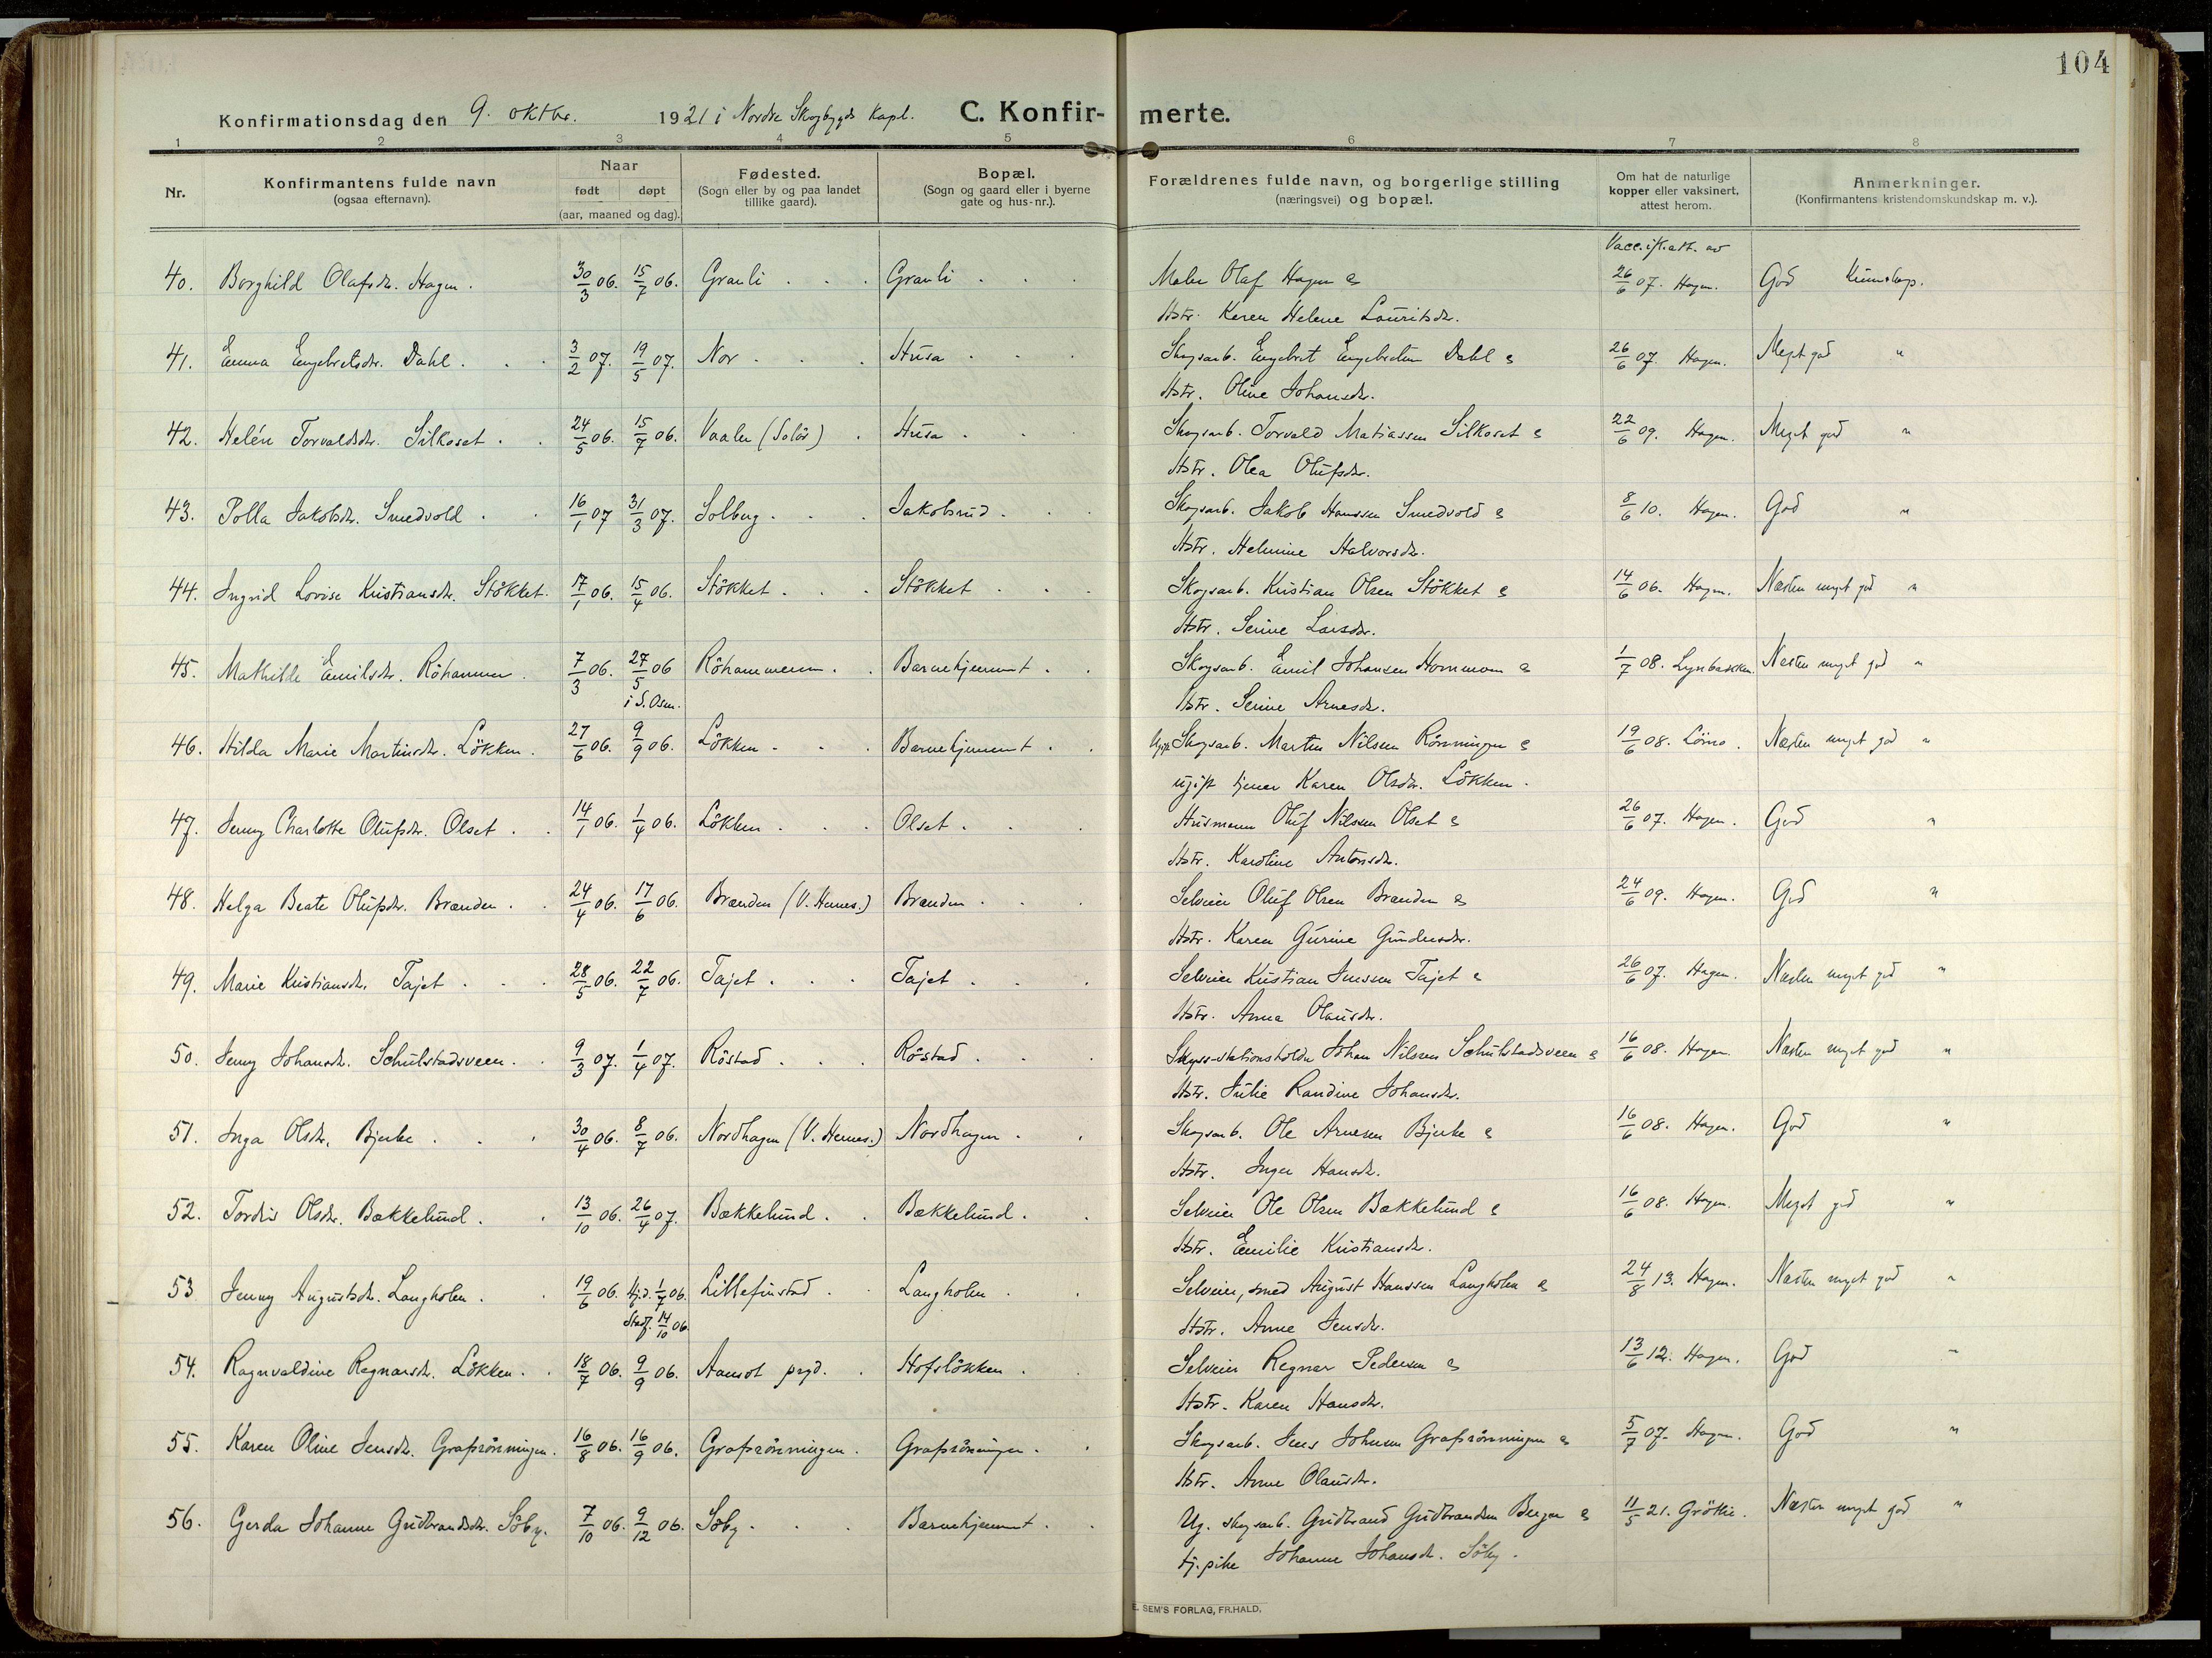 104
Konfirmationsdag den 9. oktbr. 1921 i Nordre Skogbygds Kapl. C. Konfir- merte.
1 2 3 4 5 6 7 8
Nr.
Konfirmantens fulde navn
(ogsaa efternavn).
Naar
født døpt
(aar, maaned og dag).
Fødested.
(Sogn eller by og paa landet
tillike gaard).
Bopæl.
(Sogn og gaard eller i byerne
gate og hus-nr.).
Forældrenes fulde navn, og borgerlige stilling
(næringsvei) og bopæl.
Om hat de naturlige
kopper eller vaksinert,
attest herom.
Anmerkninger.
(Konfirmantens kristendomskundskap m. v.).
Vacc. ifl. att. av
40. Borghild Olafsdr. Hagen. 30/3 06. 15/7 06. Granli . . . Granli . . . Maler Olaf Hagen & 26/6 07. Hagen. God Kunnskap.
Hstr. Karen Helene Lauritsdr.
41. Emma Engebretsdr. Dahl . . . 3/2 07. 19/5 07. Nor . . . Husa . . . Skogsarb. Engebret Engebretsen Dahl & 26/6 07. Hagen. Meget god "
Hstr. Oline Johansdr.
42. Helén Torvaldsdr. Silkoset . . 24/5 06. 15/7 06. Vaaler (Solør) . Husa . . . Skogsarb. Torvald Matiassen Silkoset & 22/6 09. Hagen. Meget god "
Hstr. Olea Olufsdr.
43. Polla Jakobsdr. Smedvold . . 16/1 07 31/3 07. Solberg . . . Jakobsrud . . . Skogsarb. Jakob Hanssen Smedvold & 8/6 10. Hagen. God "
Hstr. Helmine Halvorsdr.
44. Ingrid Lovise Kristiansdr. Stökket. 17/1 06. 15/4 06. Stökket . . . Stökket . . . Skogsarb. Kristian Olsen Stökket & 14/6 06. Hagen. Næsten meget god "
Hstr. Serine Larsdr.
45. Mathilde Emilsdr. Röhammer . 7/3 06. 27/5 06 Röhammeren . . Barnehjemmet . . Skogsarb. Emil Johansen Hammeren & 1/7 08. Lynbakken. Næsten meget god "
i S. Osen. Hstr. Serine Arnesdr.
46. Hilda Marie Martinsdr. Lökken . 27/6 06. 9/9 06. Lökken . . . Barnehjemmet . . Ugift Skogsarb. Martin Nilsen Rönningen & 19/6 08. Lömo. Næsten meget god "
ugift tjener Karen Olsdr. Lökken.
47. Jenny Charlotte Olufsdr. Olset . . 14/1 06. 1/4 06. Lökken . . . Olset . . . Husmann Oluf Nilssen Olset & 26/6 07. Hagen. God "
Hstr. Karoline Antonsdr.
48. Helga Beate Olufsdr. Brænden . . 24/4 06. 17/6 06. Brænden (V. Hernes.) Brænden . . . Selveier Oluf Olsen Brænden & 24/6 09. Hagen. God "
Hstr. Karen Gurine Gundersdr.
49. Marie Kristiansdr. Tajet . . . 28/5 06. 22/7 06. Tajet . . . Tajet . . . Selveier Kristian Jensen Tajet & 26/6 07. Hagen. Næsten meget god "
Hstr. Anna Olausdr.
50. Jenny Johansdr. Schulstadsveen . . 9/3 07. 1/4 07. Röstad . . . Röstad . . . Skyss-stationsholder Johan Nilssen Schulstadsveen & 16/6 08. Hagen. Næsten meget god "
Hstr. Julie Randine Johansdr.
51. Inga Olsdr. Bjerke . . . 30/4 06. 8/7 06. Nordhagen (V. Hernes.) Nordhagen . . Skogsarb. Ole Arnesen Bjerke & 16/6 08. Hagen. God "
Hstr. Inger Hansdr.
52. Tordis Olsdr. Bækkelund . . 13/10 06. 26/4 07. Bækkelund . . Bækkelund . . Selveier Ole Olsen Bækkelund & 16/6 08. Hagen. Meget god "
Hstr. Emilie Kristiansdr.
53 Jenny Augustsdr. Langholen . . 19/6 06. Hj.d. 1/7 06. Lillefinstad . . Langholen . . Selveier, smed August Hanssen Langholen & 24/8 13. Hagen. Næsten meget god "
Stadf. 14/10 06. Hstr. Anne Jensdr.
54. Ragnvaldine Ragnarsdr. Lökken . . 18/7 06. 9/9 06. Aamot prgd. . Hofslökken . . Selveier Regnar Pedersen & 13/6 12. Hagen. God "
Hstr. Karen Hansdr.
55. Karen Oline Jensdr. Grafsrönningen. 16/8 06. 16/9 06. Grafsrönningen . Grafsrönningen . . Skogsarb. Jens Johnsen Grafsrönningen & 5/7 07. Hagen. God "
Hstr. Anne Olausdr.
56. Gerda Johanne Gudbrandsdr. Söby. 7/10 06. 9/12 06. Söby . . . Barnehjemmet . . Ug. skogsarb. Gudbrand Gudbrandsen Berger & 11/5 21. Gröttie. Næsten meget god "
tj. pike Johanne Johansdr. Söby.
E. SEM'S FORLAG, FR.HALD.